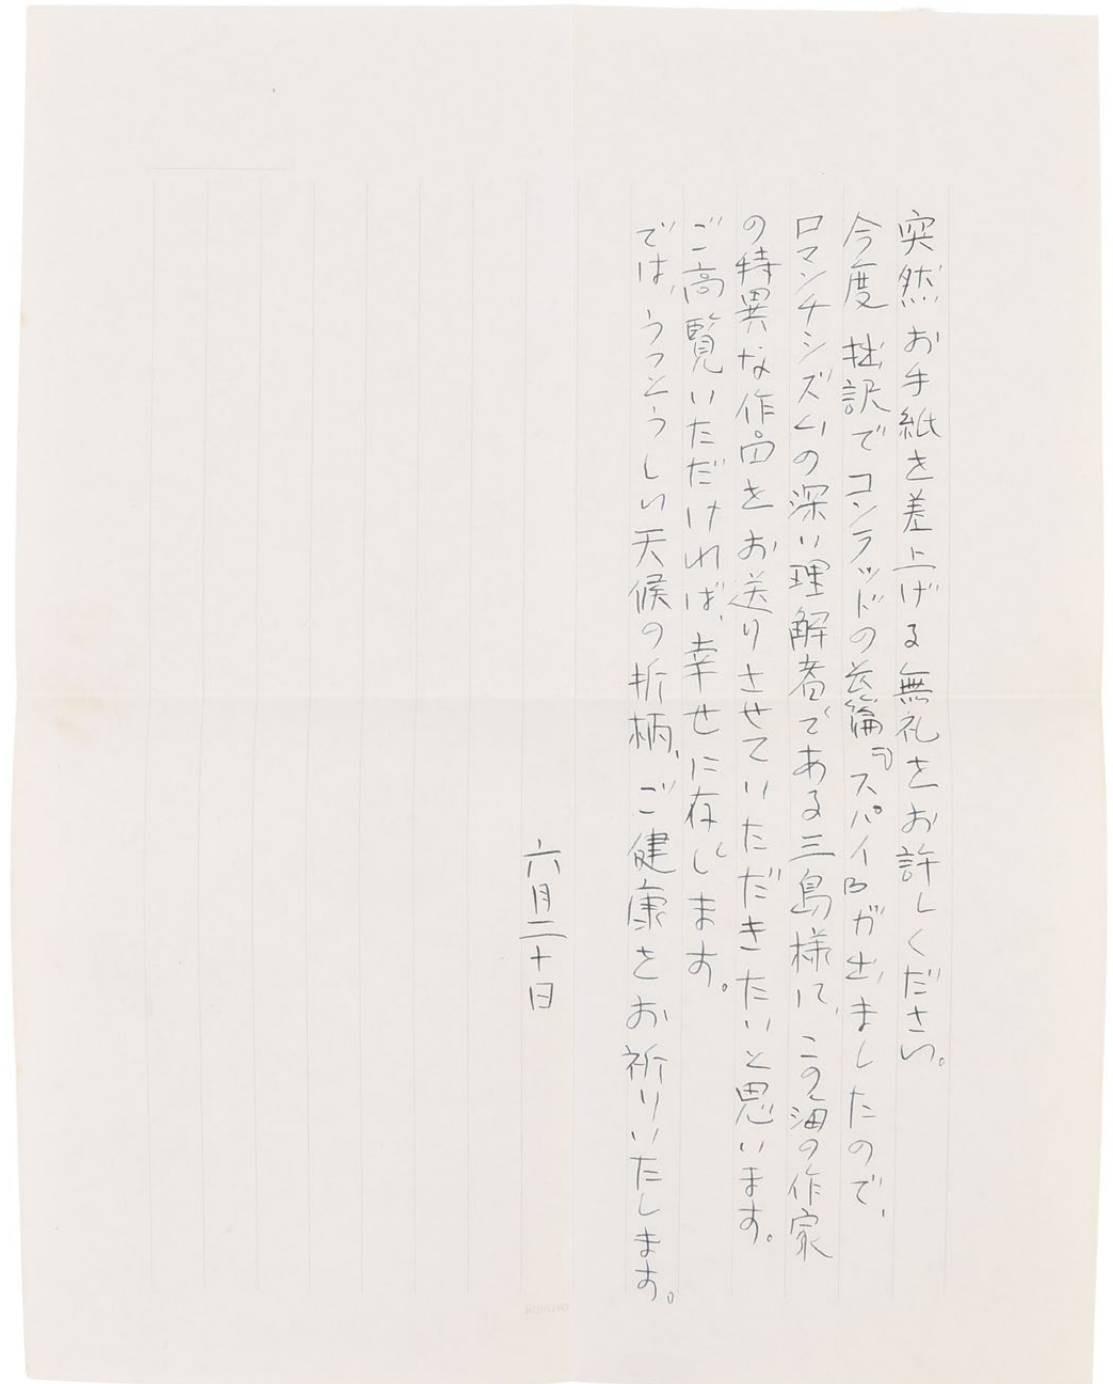 突然お手紙を差上げる無礼をお許しください。
今度 拙訳でコンラッドの长篇『スパイ』が出ましたので、
ロマンチシズムの深い理解者である三島様に、この海の作家
の特異な作品をお送りさせていただきたいと思います。
ご高覧いただければ、幸せに存じます。
では、うっとうしい天候の折柄、ご健康をお祈りいたします。
六月二十日